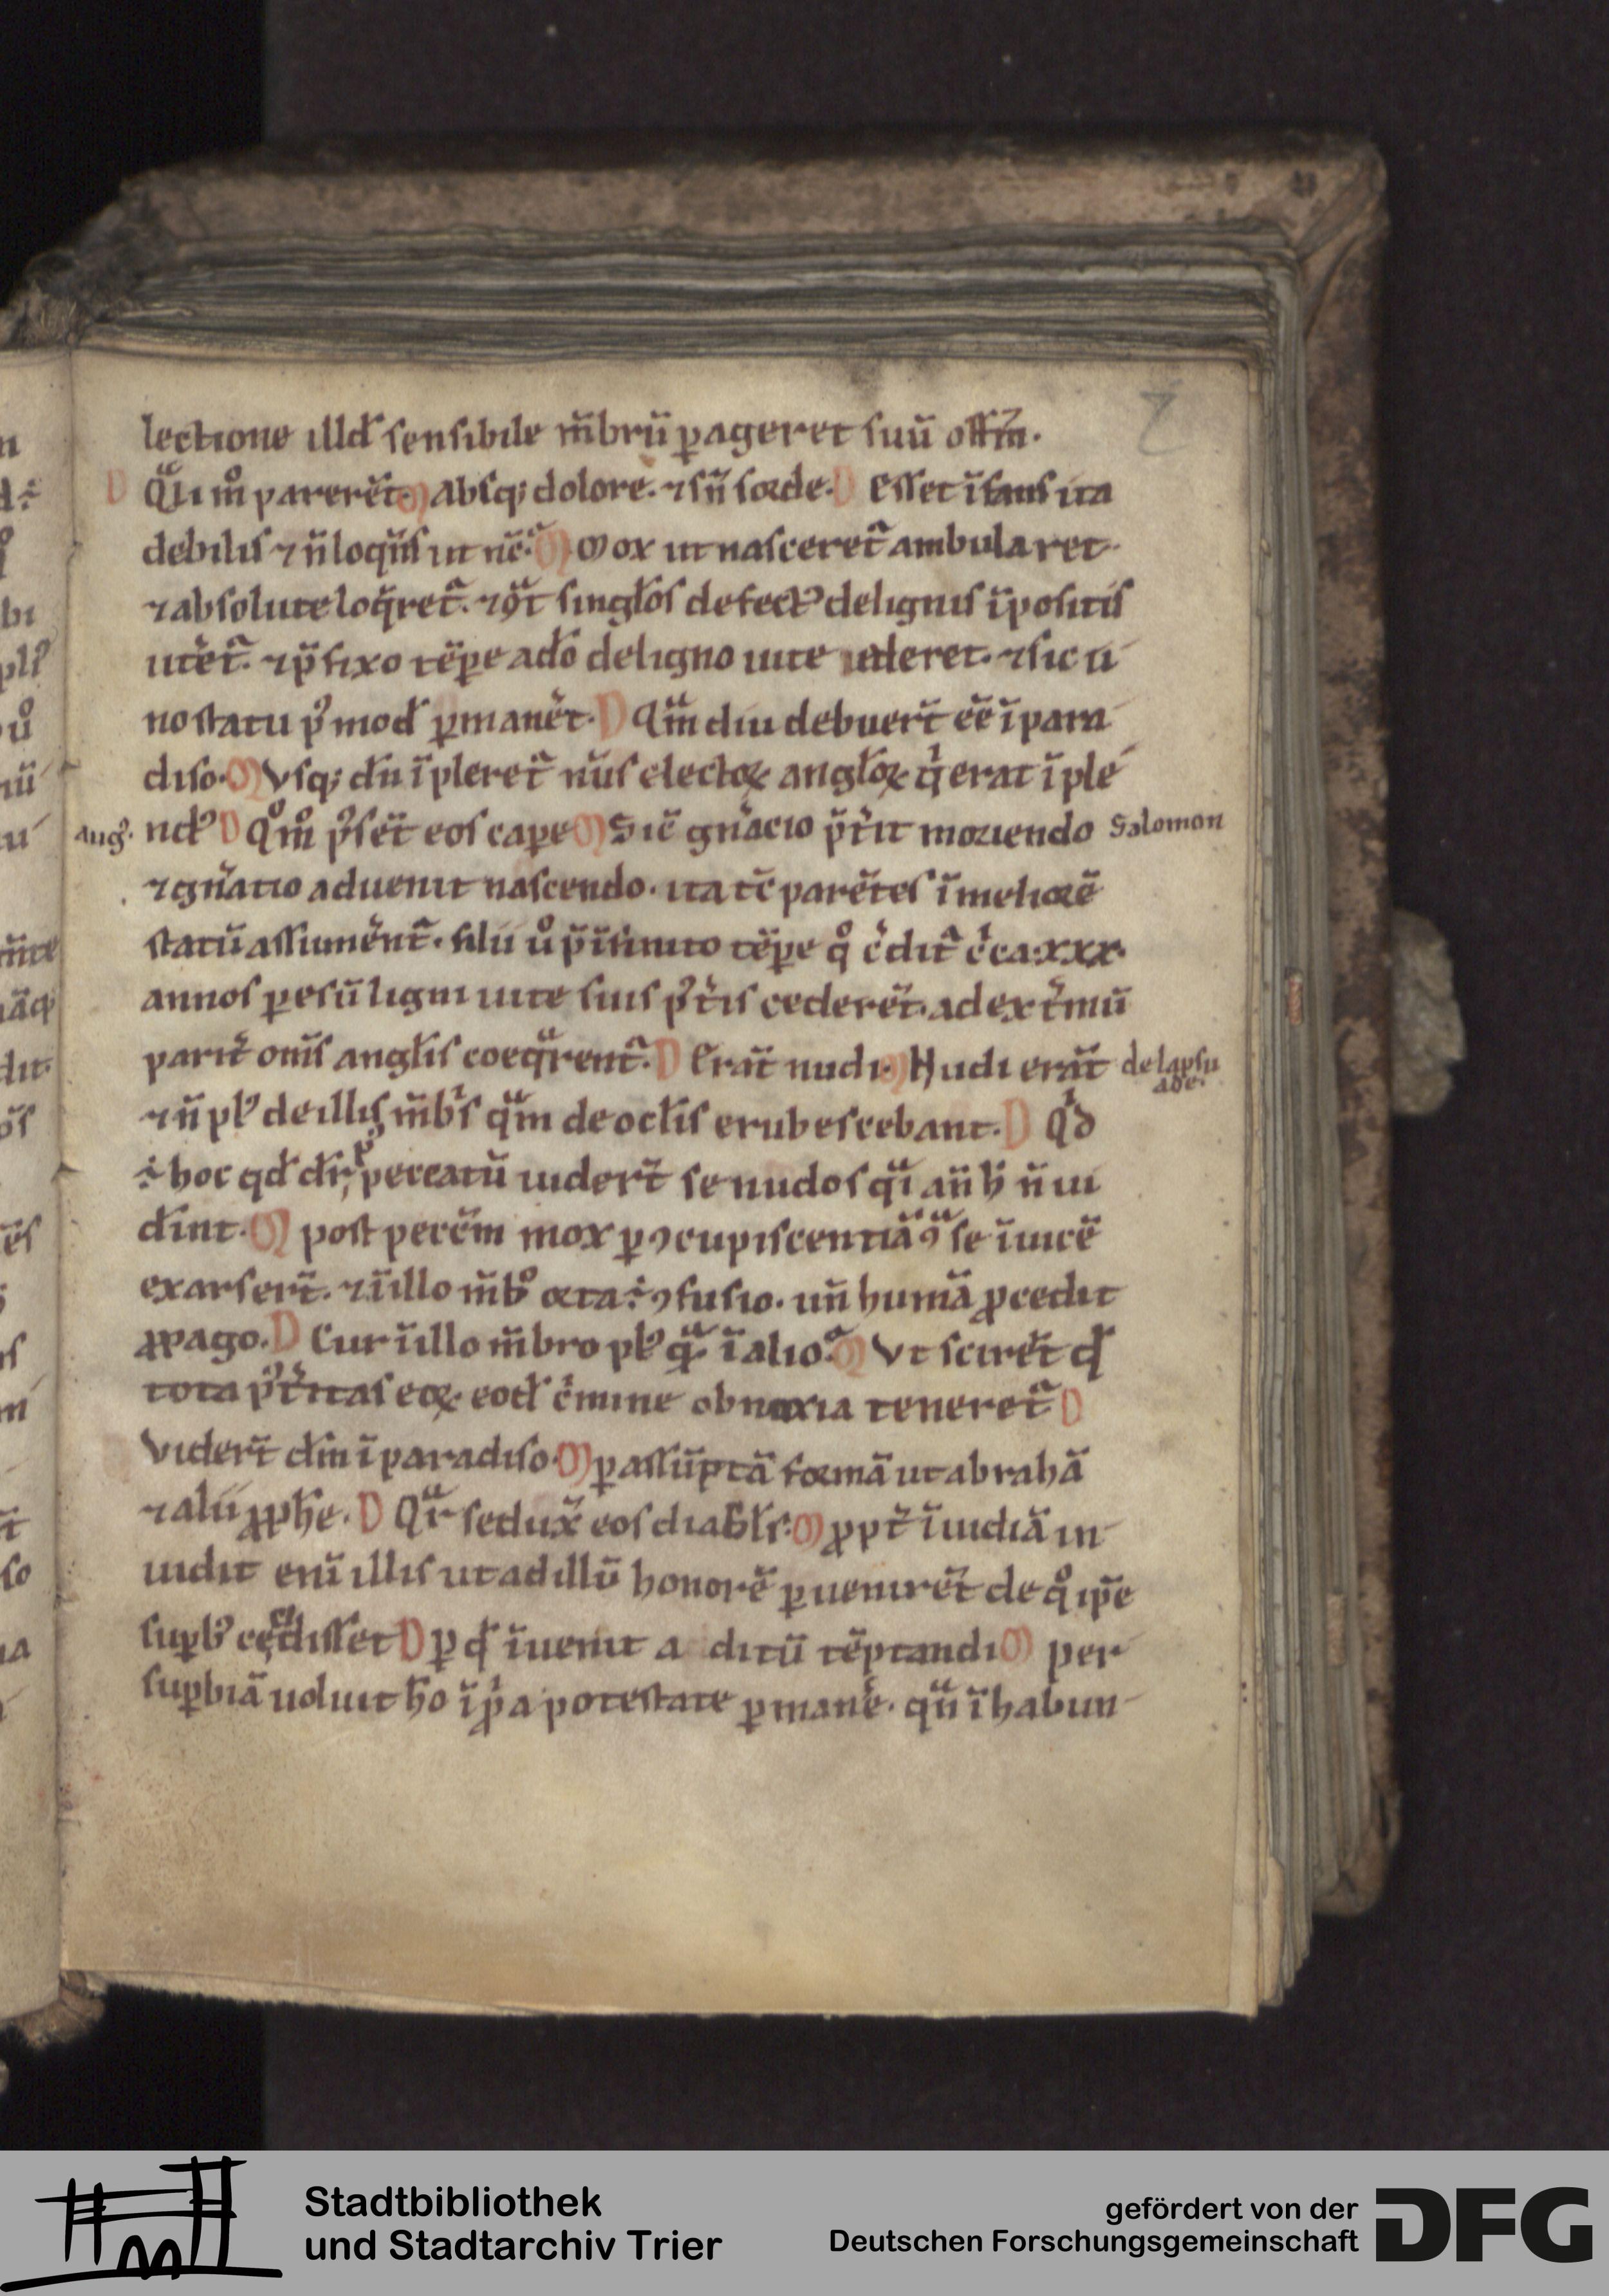 lectione illđ sensibile m̄brū ꝑageret suū offm̄.
D Qͣli mͦ parerēt. M Absq; dolore. ⁊ sn̄ sorde. D Esset īfans ita
debilis ⁊ n̄ loq̄ns ut nc̄. M Mox ut nasceret᷑ ambularet.
⁊ absolute loq̄ret᷑. ⁊ ꝯt̄ singłos defectꝰ de lignis īpositis
utēt᷑. ⁊ p̄fixo tēꝑe adō de ligno uite ederet. ⁊ sic u
no statu pꝰmođ ꝑmanēt. D Qͣmdiu debuer̄t eē ī para
diso. M Vsq; dū īpleret᷑ nūs electoꝝ angłoꝝ qͥ erat īple
Augꝰ. ndꝰ D Qͦmͦ pꝰsēt eos caꝑe M Sic̄ gn̄acio p̄t̄it moriendo Salomon
⁊ gn̄atio aduenit nascendo. ita tc̄ parētes ī meliorē
statū assumēnt᷑. filii uͦ p̄finito tēꝑe qͦ c̄dit᷑ cͥca .xxx.
annos ꝑ esū ligni uite suis pꝰt̄is cederēt. ad extͥmū
parit̄ om̄s angłis coeqͣrent᷑. D Erāt nudi. M Nudi erāt de lapsu
ade.
⁊ n̄ plꝰ de illis m̄bͥs qͣm de ocłis erubescebant. D Qͥd
÷ hoc qđ dr̄ pꝰ peccatū uider̄t se nudos qͣi an̄ h̄ n̄ ui
dīnt. M post pecc̄m mox ꝑ ꝯcupiscentiā ꝯͣ se īuicē
exarser̄t. ⁊ ī illo m̄bͦ orta ÷ ꝯfusio. un̄ humā ꝓcedit
ꝓpago. D Cur ī illo m̄bro plꝰ qͣ. ī alio. M Vt scirēt qđ
tota pꝰt̄itas eoꝝ eođ cͥmine obnoxia teneret᷑ D
Vider̄t dm̄ ī paradiso. M ꝑ assūptā formā ut abrahā
⁊ alii ꝓph̄e. D Qͣr sedux̄ eos diabłs. M ꝓpt̄ īuidiā in
uidit eni᷑ illis ut ad illū honorē ꝑuenirēt de qͦ ip̄e
suꝑbꝰ cecidisset D ꝑ qđ īuenit aditū tēptandi M per
suꝑbiā uoluit ho ī ꝓͥa potestate ꝑmanē. qͣn̄ ī habun
Stadtbibliothek
und Stadtarchiv Trier
gefördert von der
Deutschen Forschungsgemeinschaft
DFG